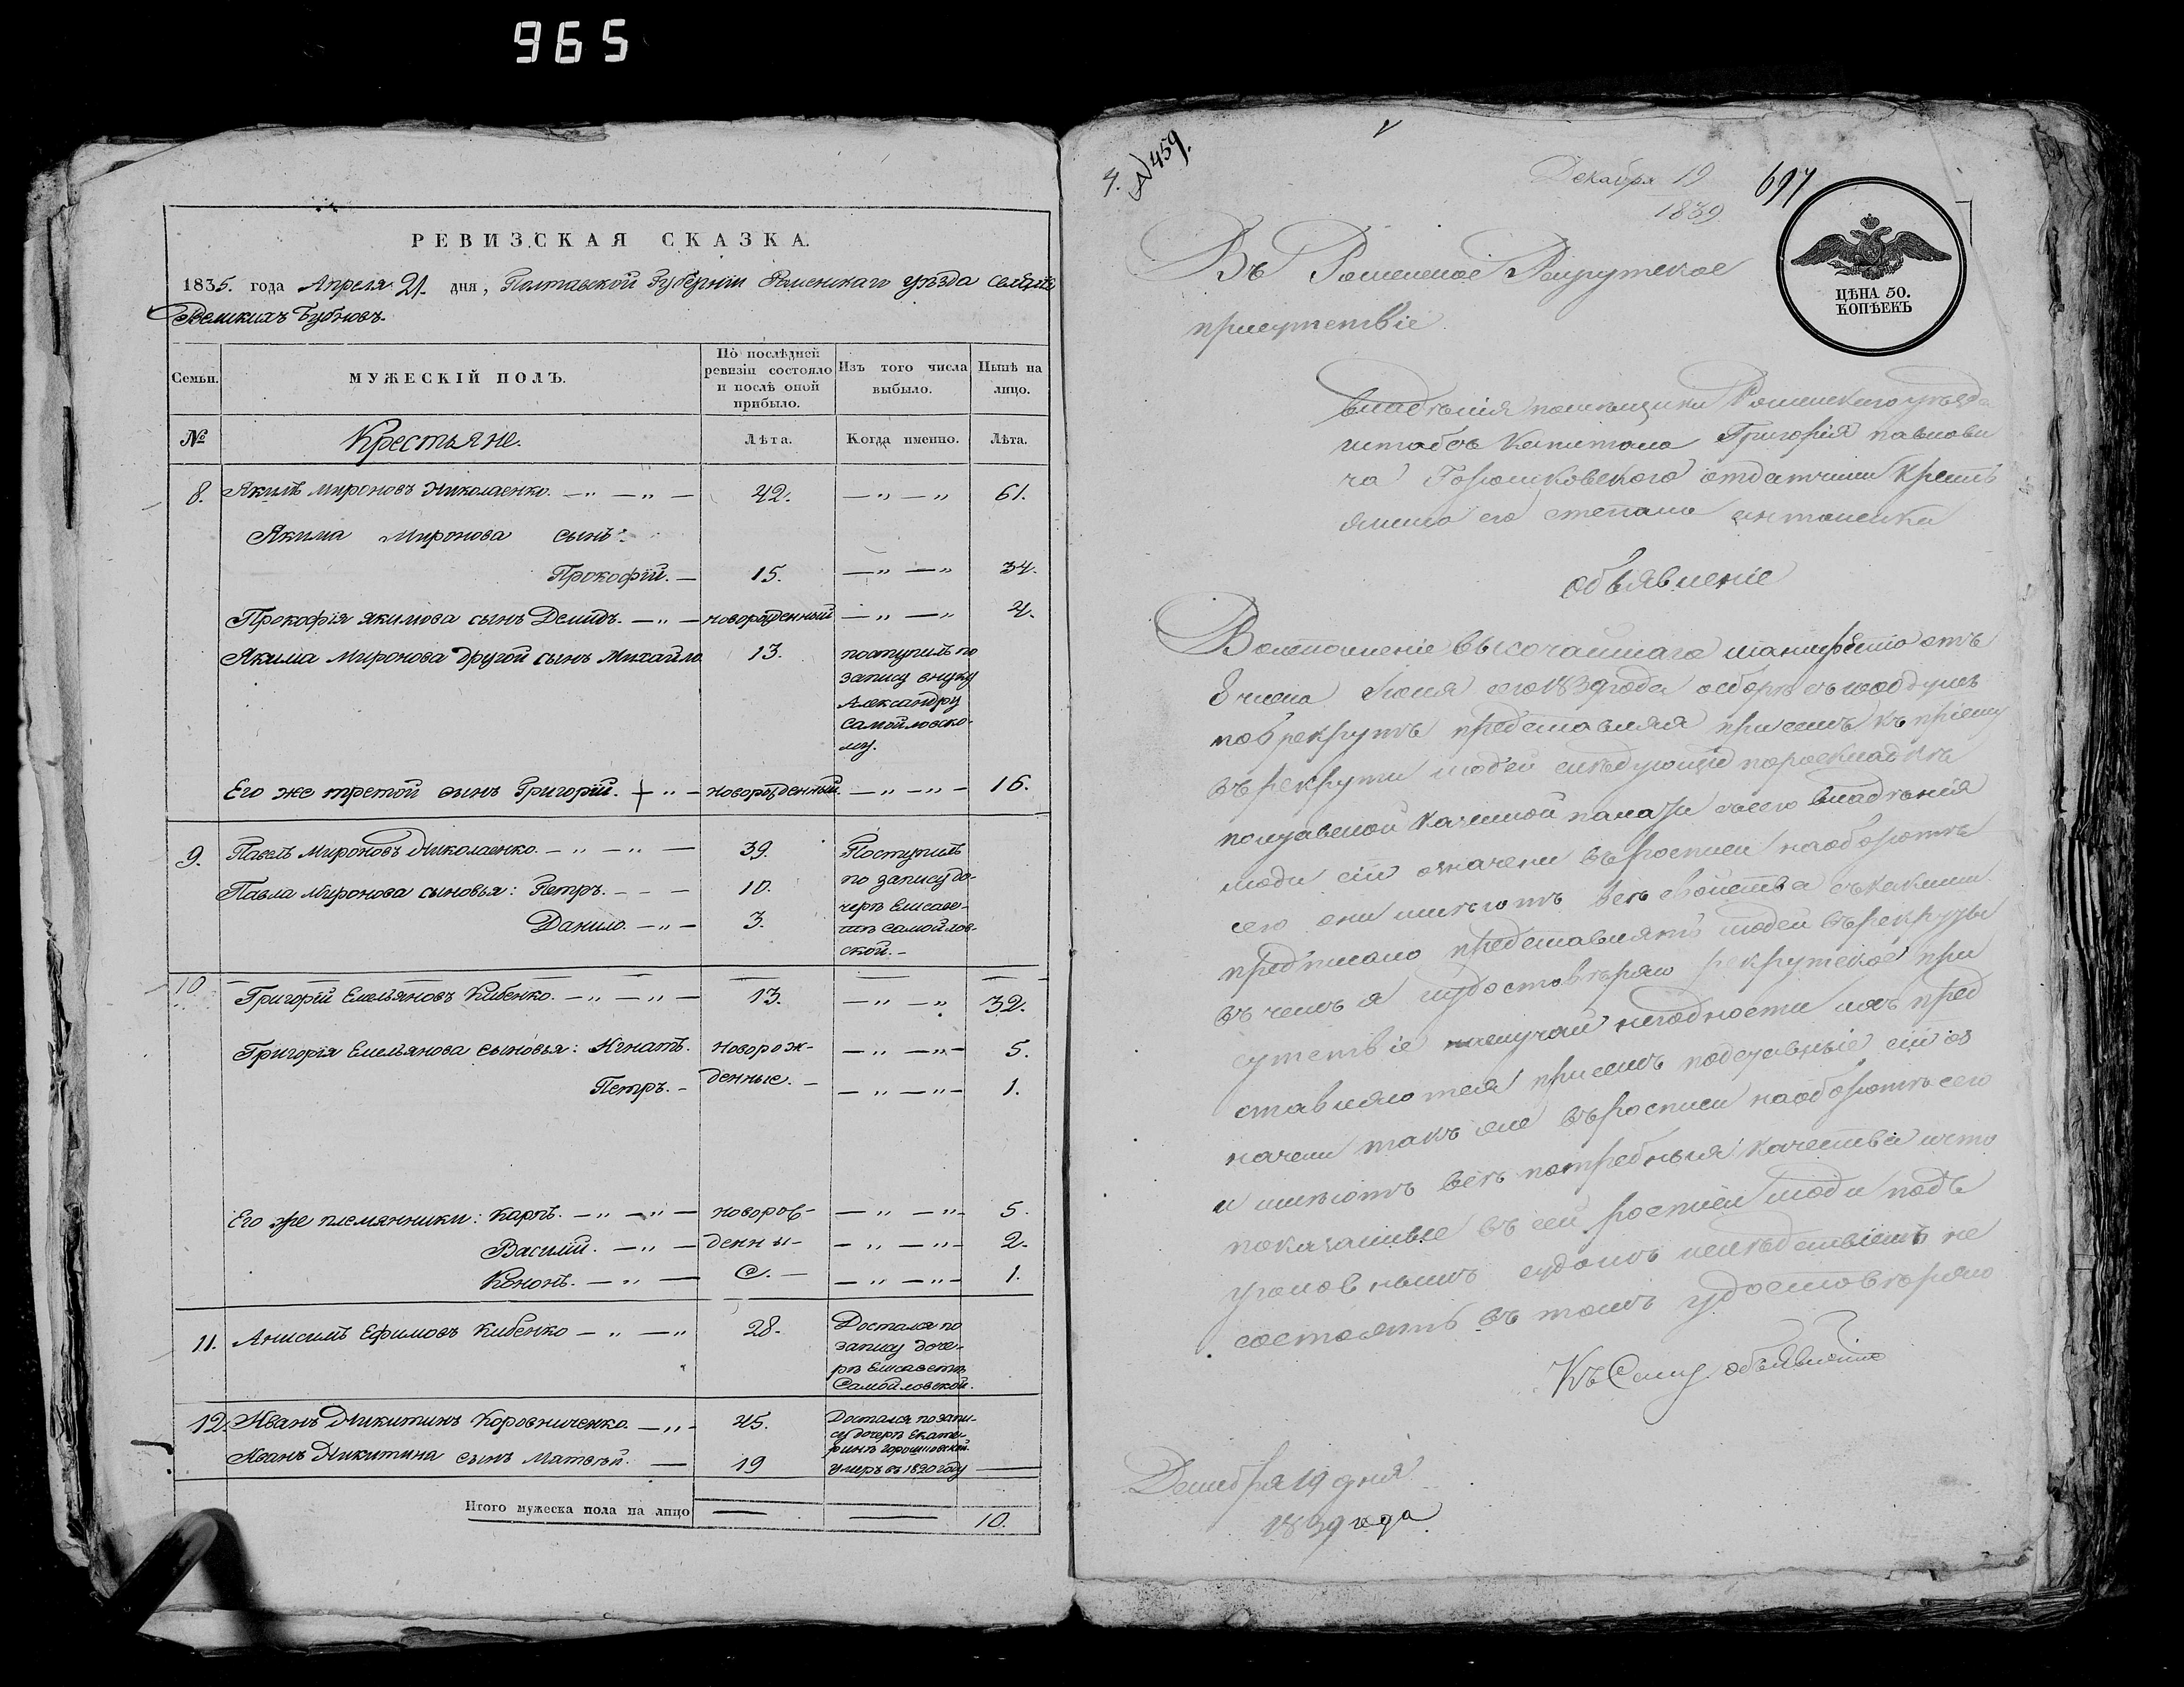 965
РЕВИЗСКАЯ СКАЗКА.
1835. года Апреля 21. дня, Полтавской Губерніи Роменскаго уезда Селенія
Великихъ Бубновъ.
Семьи.
МУЖЕСКІЙ ПОЛЪ.
По послѣдней ревизіи состояло и послѣ оной прибыло.
Изъ того числа выбыло.
Нынѣ на лицо.
№
Крестьяне.
Лѣта.
Когда именно.
Лѣта.
8. Якимъ Мироновъ Николаенко. — „ — „ — 42. — „ — „ 61.
Якима Миронова сынъ:
Прокофій. — 15. — „ — „ 34.
Прокофія Якимова сынъ Демидъ. — „ — новорожденный — „ — „ 4.
Якима Миронова другой сынъ Михайло 13. поступилъ по
запису внуку
Александру
Самойловско-
му.
Его же третой сынъ Григорій. + „ — новорожденный. — „ — „ — 16.
9. Павелъ Мироновъ Николаенко. — „ — „ — 39. Поступилъ
Павла Миронова сыновья: Петръ. — — — 10. по запису до-
черѣ Елисаве-
Данило. — „ — 3. тѣ Самойлов-
ской. —
10
Григорій Емельяновъ Кибенко. — „ — „ — 13. — „ — „ 32.
Григорія Емельянова сыновья: Игнатъ. новорож- — „ — „ — 5.
Петръ. — денные. — — „ — „ — 1.
Его же племянники: Карпъ. — „ — „ — новорож- — „ — „ — 5.
Василій. — „ — денны- — „ — „ — 2.
Кононъ. — „ — е. — — „ — „ — 1.
11. Анисимъ Ефимовъ Кибенко — „ — „ 28. Достался по
запису доче-
рѣ Елисаветѣ
Самойловской.
12. Иванъ Никитинъ Коровниченко. — „ — 45. Достался по запи-
су дочерѣ Екате-
ринѣ Горошковской.
Иванъ Никитина сынъ Матвѣй. — 19 умеръ въ 1820 году —
Итого мужеска пола на лицо — — 10.
4. №459.
Декабря 19
1839.
697
ЦѢНА 50.
КОПѢЕКЪ
Въ Роменское Рекрутское
присутствіе
владѣнія помѣщика Роменского уѣзда
штабсъ Капитана Григорія павлови
ча Горошковского отдатчика Крестъ
янина его степана антоненка
объявленіе
Воисполненіе высочайшаго манифеста отъ
8 числа Июля сего 1839 года осборѣ съ 1000 душъ
по 5 рекрутъ представляя при семъ къ пріему
въ рекруты людей слѣдующій пораскладкѣ
полтавской казенной палаты съ сего владѣнія
люди сіи означени въ росписи на оборотѣ
сего они имѣютъ всѣ свойства съ какими
предписано представлять людей въ рекруты
въ чемъ я и удостовѣряю рекрутское при
сутствіе на случай негодности ихъ пред
ставляются при семъ подставные сіи оз
начени такъ же въ росписи на оборотѣ сего
и имѣютъ всѣ потребныя качества и что
показанные въ сей росписи люди подъ
уголовнымъ судомъ и слѣдствіемъ не
состоятъ въ томъ удостовѣряю
Къ Сему объявленію
Декабря 19 дня
1839 года